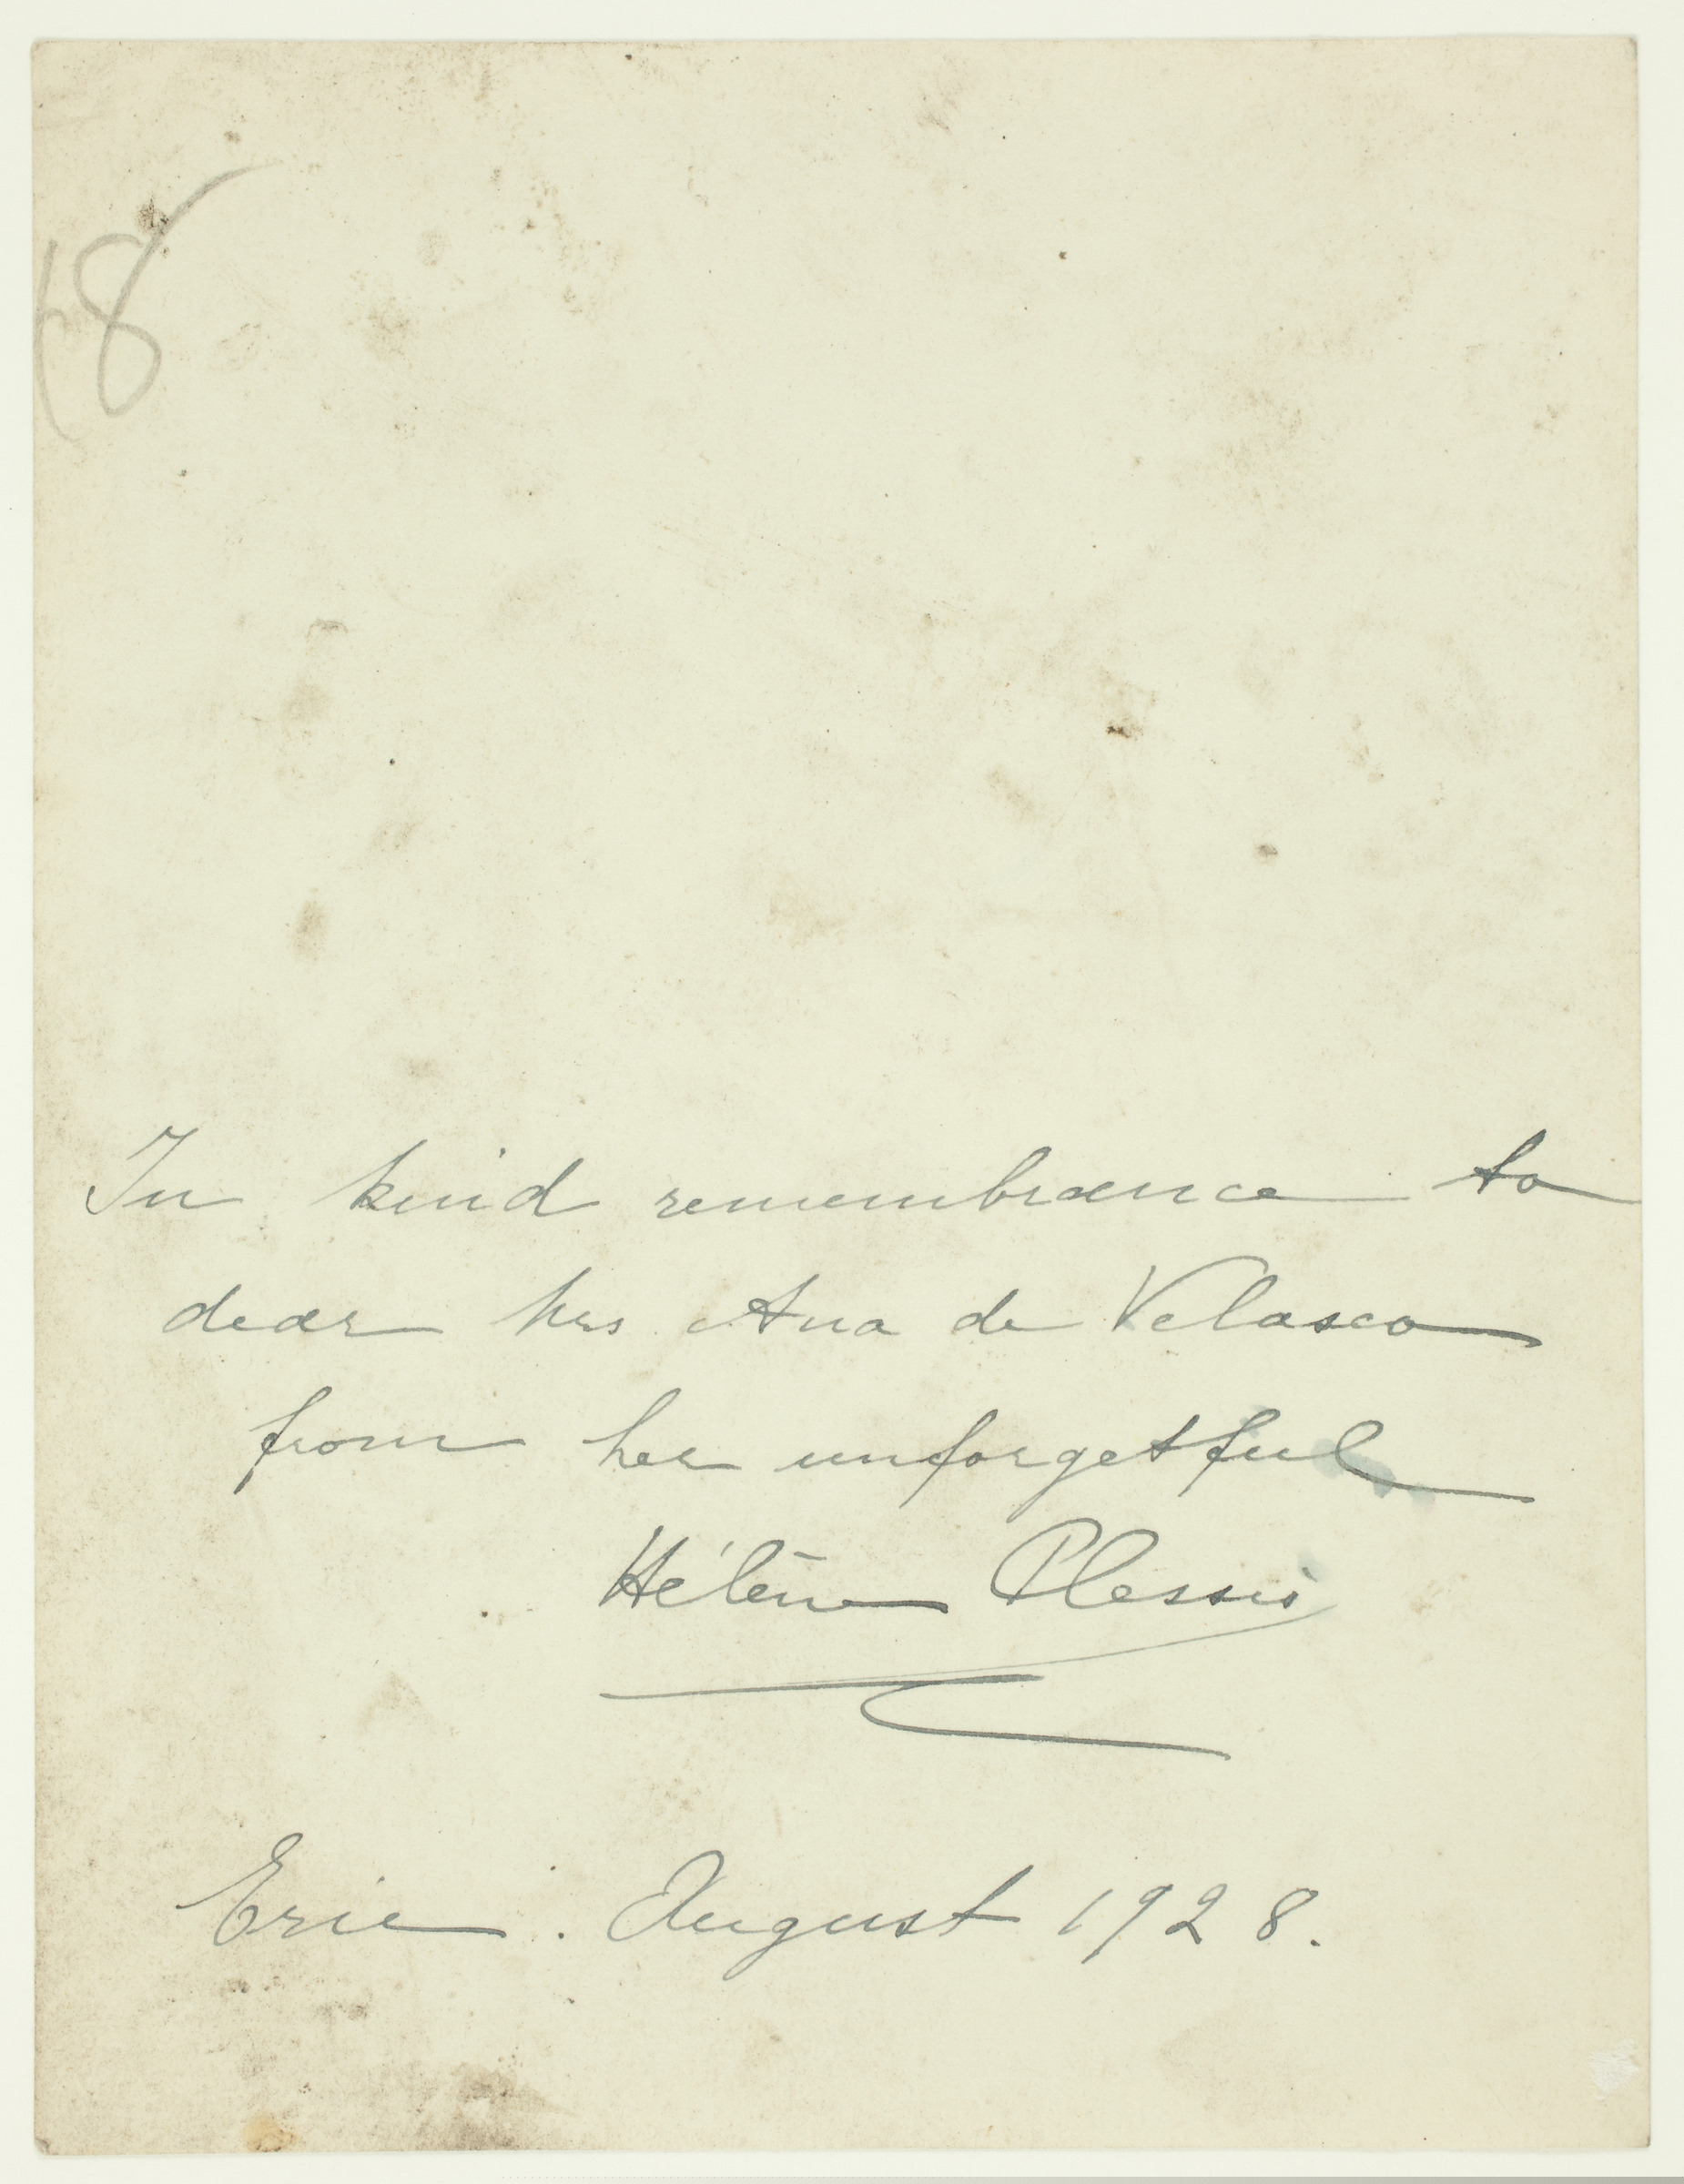 8
In kind remembrance to
dear Mrs Ana de Velasco
from her unforgetful
Hélène Plessis
Erie. August 1928.